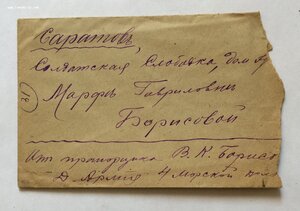 Саратовъ,
Солдатская Слободка, дом
Марфѣ Гавриловнѣ
Борисовой
21
От прапорщика В. К. Борисо
Д. Армія 4 Морской пол